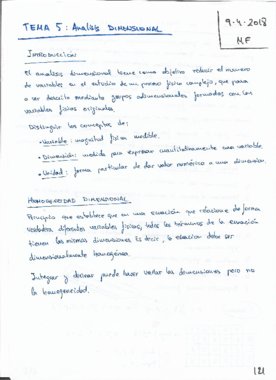 TEMA 5: Analisis DIMENSIONAL
9-4-2018
MF
INTRODUCCIÓN
El analisis dimensional tiene como objetivo reducir el numero
de variables en el estudio de un proceso fisico complejo, que pasa
a ser descrito mediante grupos adimensionales formados con las
variables fisicas originales.
Distinguir los conceptos de:
• Variable: magnitud fisica medible.
• Dimensión: medida para expresar cualitativamente una variable.
• Unidad: forma particular de dar valor numérico a una dimension.
HOMOGENEIDAD DIMENSIONAL
Principio que establece que en una ecuación que relacione de forma
verdadera diferentes variables fisicas, todos los términos de la ecuación
tienen las mismas dimensiones. Es decir, la ecuacion debe ser
dimensionalmente homogénea.
Integrar y derivar puede hacer variar las dimensiones pero no
la homogeneidad.
121